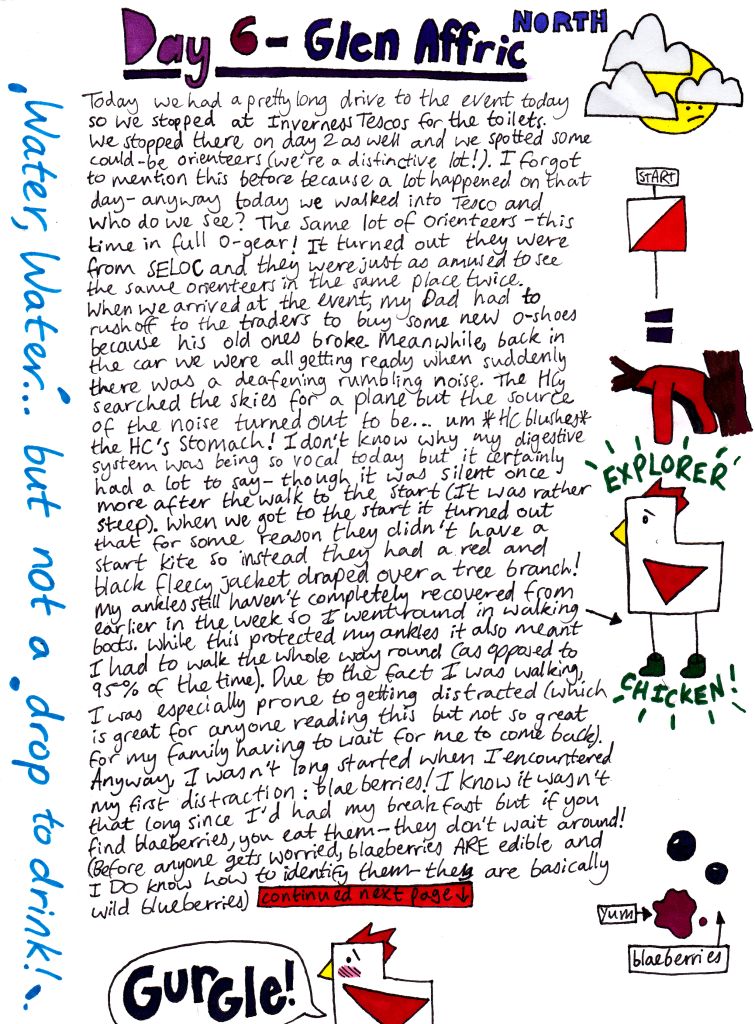 Day 6 - Glen Affric NORTH
Today we had a pretty long drive to the event today
so we stopped at Inverness Tescos for the toilets.
We stopped there on day 2 as well and we spotted some
could-be orienteers (we're a distinctive lot!). I forgot
to mention this before because a lot happened on that
day- anyway today we walked into Tesco and
who do we see? The same lot of orienteers - this
time in full O-gear! It turned out they were
from SELOC and they were just as amused to see
the same orienteers in the same place twice.
When we arrived at the event, my Dad had to
rush off to the traders to buy some new O-shoes
because his old ones broke. Meanwhile, back in
the car we were all getting ready when suddenly
there was a deafening rumbling noise. The HC
searched the skies for a plane but the source
of the noise turned out to be... um *HC blushes*
the HC's stomach! I don't know why my digestive
system was being so vocal today but it certainly
had a lot to say- though it was silent once
more after the walk to the start (It was rather
steep). When we got to the start it turned out
that for some reason they didn't have a
start kite so instead they had a red and
black fleecy jacket draped over a tree branch!
My ankles still haven't completely recovered from
earlier in the week so I went round in walking
boots. While this protected my ankles it also meant
I had to walk the whole way round (as opposed to
95% of the time). Due to the fact I was walking,
I was especially prone to getting distracted (which
is great for anyone reading this but not so great
for my family having to wait for me to come back).
Anyway, I wasn't long started when I encountered
my first distraction: blaeberries! I know it wasn't
that long since I'd had my breakfast but if you
find blaeberries, you eat them- they don't wait around!
(Before anyone gets worried, blaeberries ARE edible and
I DO know how to identify them- they are basically
wild blueberries) continued next page ↓
Water, Water... but not a drop to drink!
START
EXPLORER
CHICKEN!
yum
blaeberries
GURGLE!